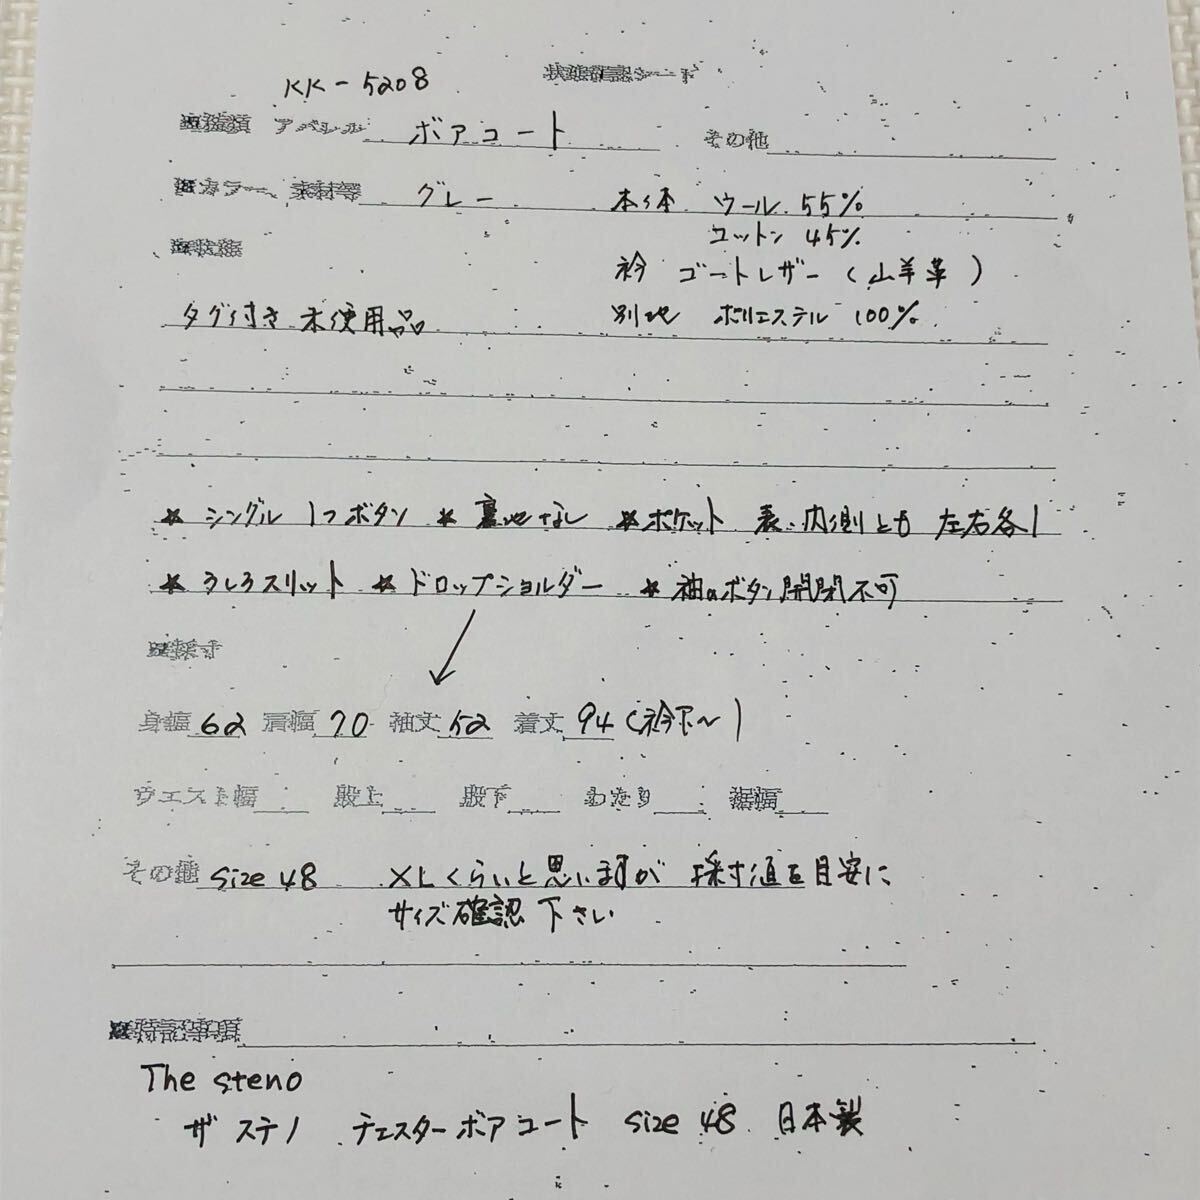 KK-5208 状態確認シート
■種類 アパレル ボアコート その他
■カラー、素材等 グレー 本体 ウール 55%
コットン 45%
■状態 衿 ゴートレザー(山羊革)
タグ付き 未使用品 別地 ポリエステル 100%
★シングル 1つボタン ★裏地なし ★ポケット 表、内側とも 左右各1
★うしろスリット ★ドロップショルダー ★袖のボタン開閉不可
■採寸
身幅 62 肩幅 70 袖丈 52 着丈 94(衿下〜)
ウエスト幅 股上 股下 わたり 裾幅
その他 size 48 XLくらいと思いますが 採寸値を目安に
サイズ確認下さい
■特記事項
The steno
ザ ステノ チェスターボアコート size 48 日本製